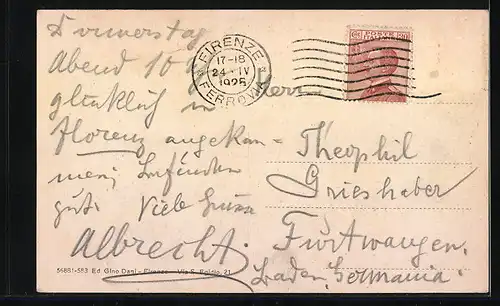 Donnerstag
Abend 10
glücklich in
Florenz angekom-
men; befinden
gut. Viele Grüsse
Albrecht.
FIRENZE
17-18
24·IV
1925
FERROVIA
Herrn
Theophil
Grieshaber
Furtwangen
Baden, Germania.
56881-583 Ed. Gino Dani - Firenze - Via S. Egidio, 21